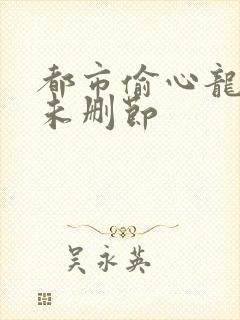 都市偷心龍
未删節
吴永英